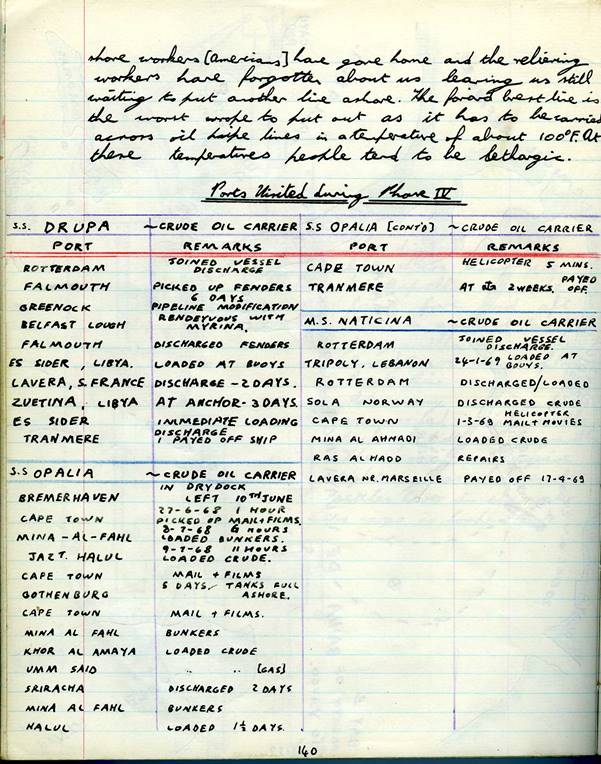 shore workers [Americans] have gone home and the relieving
workers have forgotten about us leaving us still
waiting to put another line ashore. The for'ard breast line is
the worst wrope to put out as it has to be carried
across oil pipe lines in a temperature of about 100°F. At
these temperatures people tend to be lethargic.
Ports Visited during Phase IV
S.S. DRUPA ~CRUDE OIL CARRIER
PORT REMARKS
ROTTERDAM JOINED VESSEL
DISCHARGE
FALMOUTH PICKED UP FENDERS
6 DAYS
GREENOCK PIPELINE MODIFICATION
BELFAST LOUGH RENDEVYOUS WITH
MYRINA.
FALMOUTH DISCHARGED FENDERS
ES SIDER, LIBYA. LOADED AT BUOYS
LAVERA, S. FRANCE DISCHARGE - 2 DAYS.
ZUETINA, LIBYA AT ANCHOR - 3 DAYS.
ES SIDER IMMEDIATE LOADING
TRANMERE DISCHARGE
1 PAYED OFF SHIP
S.S OPALIA ~CRUDE OIL CARRIER
BREMERHAVEN IN DRYDOCK
LEFT 10TH JUNE
CAPE TOWN 27-6-68 1 HOUR
PICKED UP MAIL+FILMS.
MINA-AL-FAHL 8-7-68 6 HOURS
LOADED BUNKERS.
JAZT. HALUL 9-7-68 11 HOURS
LOADED CRUDE.
CAPE TOWN MAIL + FILMS
GOTHENBURG 5 DAYS. TANKS FULL
ASHORE.
CAPE TOWN MAIL + FILMS.
MINA AL FAHL BUNKERS
KHOR AL AMAYA LOADED CRUDE
UMM SAID " " [GAS]
SRIRACHA DISCHARGED 2 DAYS
MINA AL FAHL BUNKERS
HALUL LOADED 1½ DAYS.
S.S OPALIA [CONT'D] ~CRUDE OIL CARRIER
PORT REMARKS
CAPE TOWN HELICOPTER 5 MINS.
TRANMERE AT 2 WEEKS. PAYED
OFF.
M.S. NATICINA ~CRUDE OIL CARRIER
ROTTERDAM JOINED VESSEL
DISCHARGE.
TRIPOLY, LEBANON 24-1-69 LOADED AT
BOUYS.
ROTTERDAM DISCHARGED/LOADED
SOLA NORWAY DISCHARGED CRUDE
CAPE TOWN HELICOPTER
1-3-69 MAIL+MOVIES
MINA AL AHMADI LOADED CRUDE
RAS AL HADD REPAIRS
LAVERA NR. MARSEILLE PAYED OFF 17-4-69
140